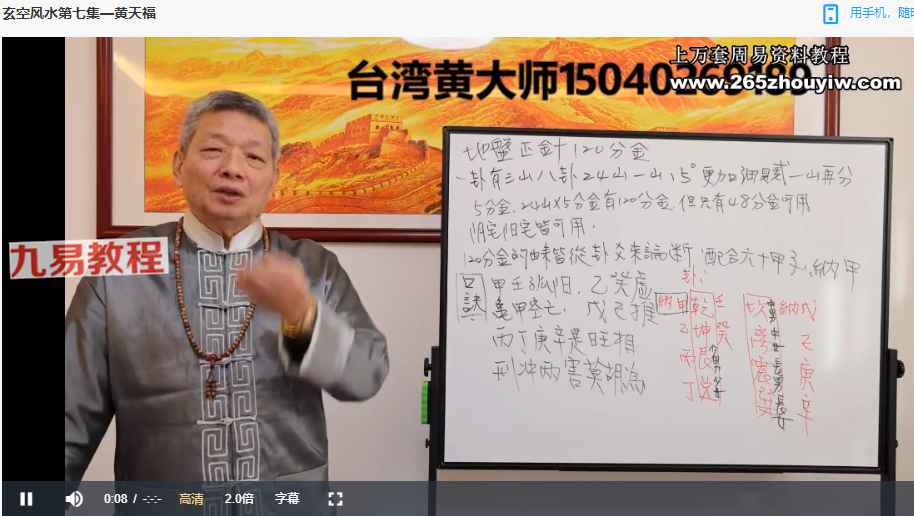 玄空风水第七集—黄天福
用手机，随时
上万套周易资料教程
台湾黄大师15040260189
www.265zhouyiw.com
地盤正針120分金
一卦有三山八卦24山一山15°更加細則一山再分
5分金.24山X5分金有120分金.但只有48分金可用
阴宅阳宅皆可用.
120分金的由來皆從卦爻來論断,配合六十甲子,納甲
口訣
甲壬孤阳.乙癸虛
龜甲空亡.戊己推
丙丁庚辛是旺相
刑冲兩害莫胡為
卦:
納甲
乾
坤
艮
兌
壬
癸
乙
丙
丁
坎
離
震
巽
納
戊
己
庚
辛
九易教程
0:08 / -:-:-
高清
2.0倍
字幕